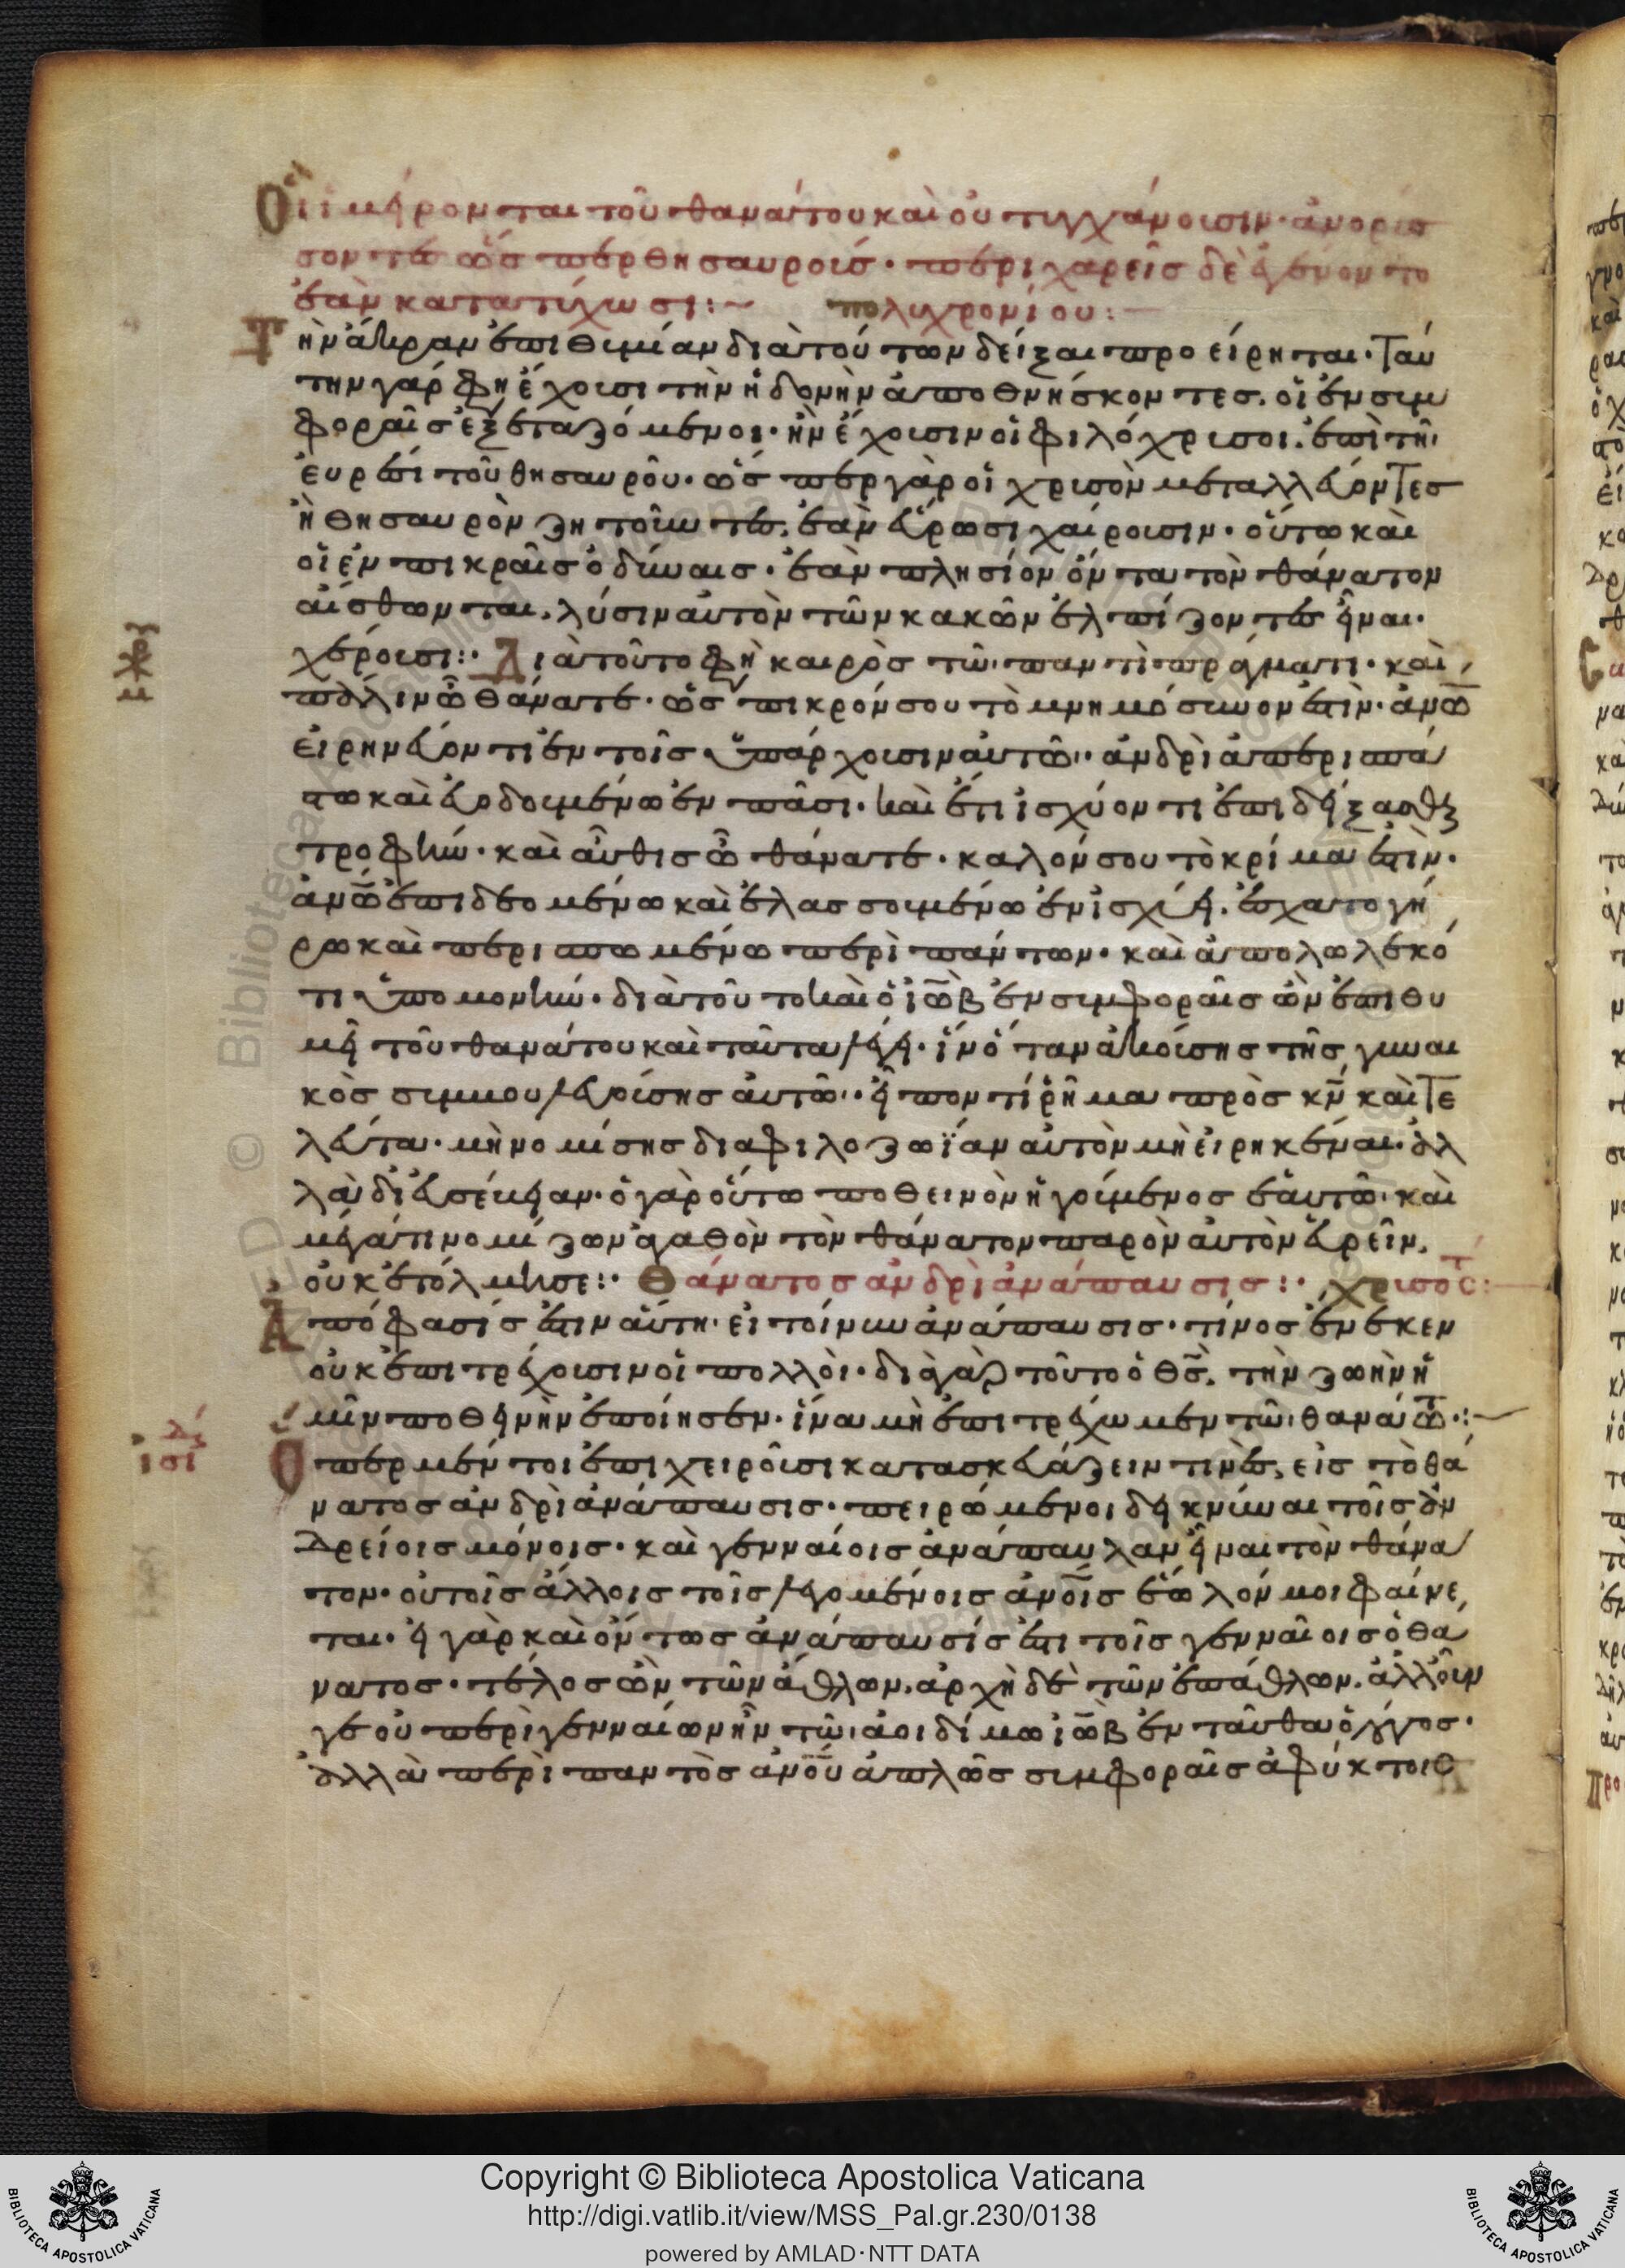 Οἳ ἱμείρονται τοῦ θανάτου καὶ οὐ τυγχάνουσιν· ἀνορύσ
σοντες ὥσπερ θησαυρούς· περιχαρεῖς δὲ ἐγένοντο
ἐὰν κατατύχωσι:~ πολυχρονίου:
Τὴν ἄκραν ἐπιθυμίαν διὰ τούτων δεῖξαι προείρηται· ταύ
την γάρ φη ἔχουσι τὴν ἡδονὴν ἀποθνήσκοντες. οἱ ἐν συμ
φοραῖς ἐξεταζόμενοι· ἣν ἔχουσιν οἱ φιλόχρυσοι. ἐπὶ τῆ
εὑρέσει τοῦ θησαυροῦ· ὥσπερ γὰρ οἱ χρυσὸν μεταλλεύοντες
ἢ θησαυρὸν ζητοῦντες, ἐὰν εὕρωσι χαίρουσιν· οὕτω καὶ
οἱ ἐν πικραῖς ὀδύναις· ἐὰν πλησίον ὄντα τὸν θάνατον
αἴσθωνται, λύσιν αὐτὸν τῶν κακῶν ἐλπίζοντες εἶναι·
χέρουσι:· Διὰ τοῦτο φη καιρὸς τῶ παντὶ πράγματι· καὶ
πάλιν ὦ θάνατε· ὡς πικρόν σου τὸ μνημόσυνον ἐστὶν· ἀνω
εἰρηνεύοντι ἐν τοῖς ὑπάρχουσιν αὐτῶ· ἀνδρὶ ἀπερισπά
τω καὶ εὐοδουμένω ἐν πᾶσι· καὶ ἔτι ἰσχύοντι ἐπιδείξασθαι
τροφήν· καὶ αὖθις ὦ θάνατε· καλόν σου τὸ κρίμα ἐστὶν·
ἀνω ἐπιδεομένω καὶ ἐλασσουμένω ἐν ἰσχύει· ἐσχατογή
ρω καὶ περισπωμένω περὶ πάντων· καὶ ἀπολωλεκό
τι ὑπομονήν· διὰ τοῦτο καὶ ὁ ἰωβ ἐν συμφοραῖς ὢν ἐπιθυ
μεῖ τοῦ θανάτου καὶ ταῦτα λέγει· ἵν' ὅταν ἀκούσης τῆς γυναι
κὸς συμβουλευούσης αὐτῶ· εἶπον τί ῥῆμα πρὸς κν καὶ τε
λεύτα· μὴ νομίσης διὰ φιλοζωΐαν αὐτὸν μὴ εἰρηκέναι· ἀλ
λὰ δι' εὐσέβειαν· ὁ γὰρ οὕτω ποθεινὸν ἡγούμενος ἑαυτῶ· καὶ
μέγα τι νομίζων ἀγαθὸν τὸν θάνατον παρὸν αὐτὸν εὑρεῖν,
οὐκ ἐτόλμησε:· Θάνατος ἀνδρὶ ἀνάπαυσις:· χρυσοστ:
Ἀπόφασίς ἐστιν αὕτη· εἰ τοίνυν ἀνάπαυσις· τίνος ἕνεκεν
οὐκ ἐπιτρέχουσιν οἱ πολλοὶ· διὰ γὰρ τοῦτο ὁ θς, τὴν ζωὴν ἡ
μῖν ποθεινὴν ἐποίησεν· ἵνα μὴ ἐπιτρέχωμεν τῶ θανάτω·:
Ὅπερ μέν τοι ἐπιχειροῦσι κατασκευάζειν τινὲς, εἰς τὸ θά
νατος ἀνδρὶ ἀνάπαυσις· πειρώμενοι δεικνύναι τοῖς ἀν
δρείοις μόνοις· καὶ γενναίοις ἀνάπαυλαν εἶναι τὸν θάνα
τον· οὐ τοῖς ἄλλοις τοῖς λεγομένοις ἀνοις ἕωλόν μοι φαίνε
ται· εἰ γὰρ καὶ ὄντως ἀνάπαυσίς ἐστι τοῖς γενναίοις ὁ θά
νατος· τέλος ὢν τῶν ἄθλων, ἀρχὴ δὲ τῶν ἐπάθλων, ἀλλ' οὖν
γε οὐ περὶ γενναίων ἦν τῶ ἀοιδίμω ἰωβ ἐνταῦθα ὁ λόγος·
ἀλλὰ περὶ παντὸς ἀνου ἁπλῶς συμφοραῖς ἀφύκτοις